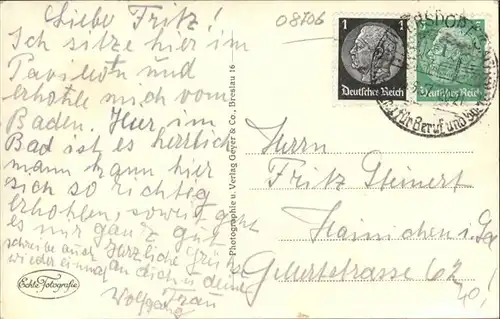 Liebe Fritz!
Ich sitze hier im
Pavillon und
erhohle mich vom
Baden. Hier im
Bad ist es herrlich
mann kann hier
sich so richtig
erhohlen, soweit geht
es mir ganz gut
schreibe auch Herzliche Grüße
wieder einmal an dich u deine
Wolfgang Frau
Echte Fotografie
Photographie u. Verlag Geyer & Co., Breslau 16
08706
1
Deutsches Reich
Deutsches Reich
für Beruf und
Herrn
Fritz Steinert
Hainichen i. Sa
Gellertstrasse 62